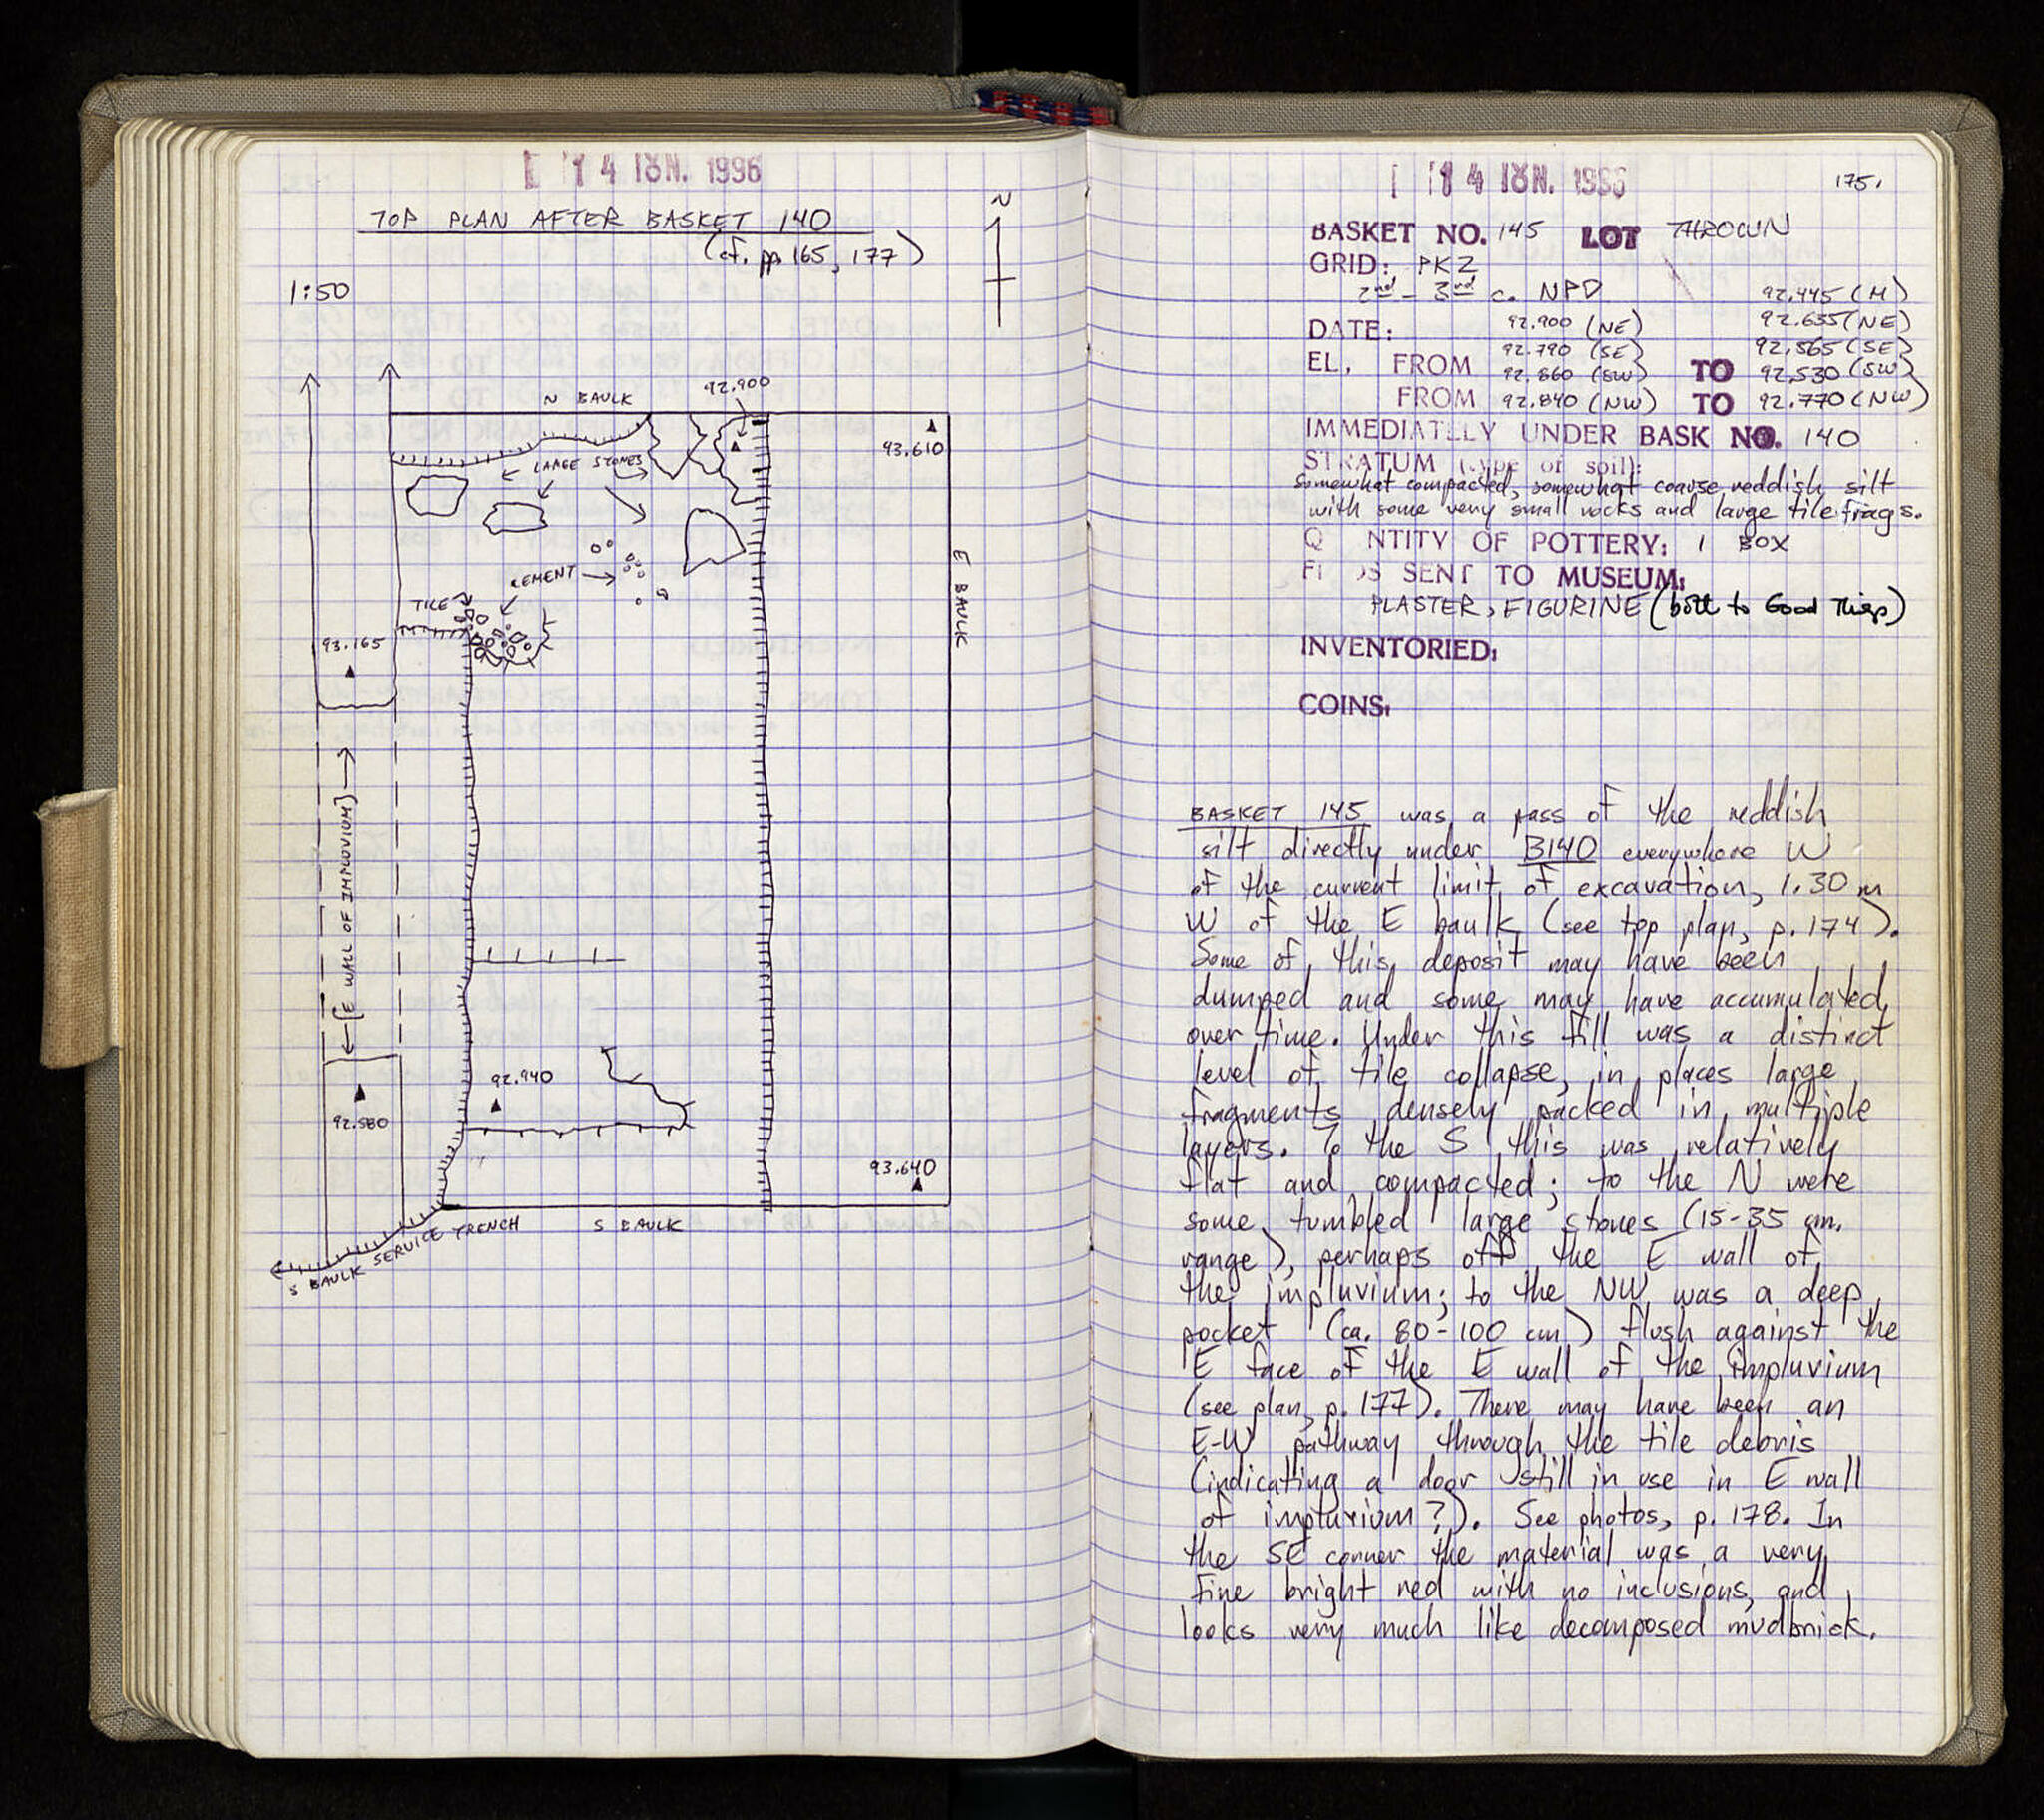 14 ΙΟΥΝ. 1996
TOP PLAN AFTER BASKET 140
(cf. pp. 165, 177)
1:50
N
N BAULK
92.900
93.610
LARGE STONES
CEMENT
TILE
93.165
E BAULK
[E WALL OF IMPLUVIUM]
92.940
92.580
93.640
S BAULK
S BAULK SERVICE TRENCH
14 ΙΟΥΝ. 1996
175.
BASKET NO. 145 LOT THROWN
GRID: PKZ
2nd - 3rd c. NPD 92.445 (M)
DATE: 92.900 (NE) 92.635 (NE)
92.790 (SE) 92.565 (SE)
EL. FROM 92.860 (SW) TO 92.530 (SW)
FROM 92.840 (NW) TO 92.770 (NW)
IMMEDIATELY UNDER BASK NO. 140
STRATUM (type of soil):
Somewhat compacted, somewhat coarse reddish silt
with some very small rocks and large tile frags.
Q NTITY OF POTTERY: 1 BOX
FI DS SENT TO MUSEUM:
PLASTER, FIGURINE (both to Good Things)
INVENTORIED:
COINS:
BASKET 145 was a pass of the reddish
silt directly under B140 everywhere W
of the current limit of excavation, 1.30 m
W of the E baulk (see top plan, p. 174).
Some of this deposit may have been
dumped and some may have accumulated
over time. Under this fill was a distinct
level of tile collapse, in places large
fragments densely packed in multiple
layers. To the S this was relatively
flat and compacted; to the N were
some tumbled large stones (15-35 cm.
range), perhaps off the E wall of
the impluvium; to the NW was a deep
pocket (ca. 80-100 cm) flush against the
E face of the E wall of the impluvium
(see plan, p. 177). There may have been an
E-W pathway through the tile debris
(indicating a door still in use in E wall
of impluvium?). See photos, p. 178. In
the SE corner the material was a very
fine bright red with no inclusions, and
looks very much like decomposed mudbrick.